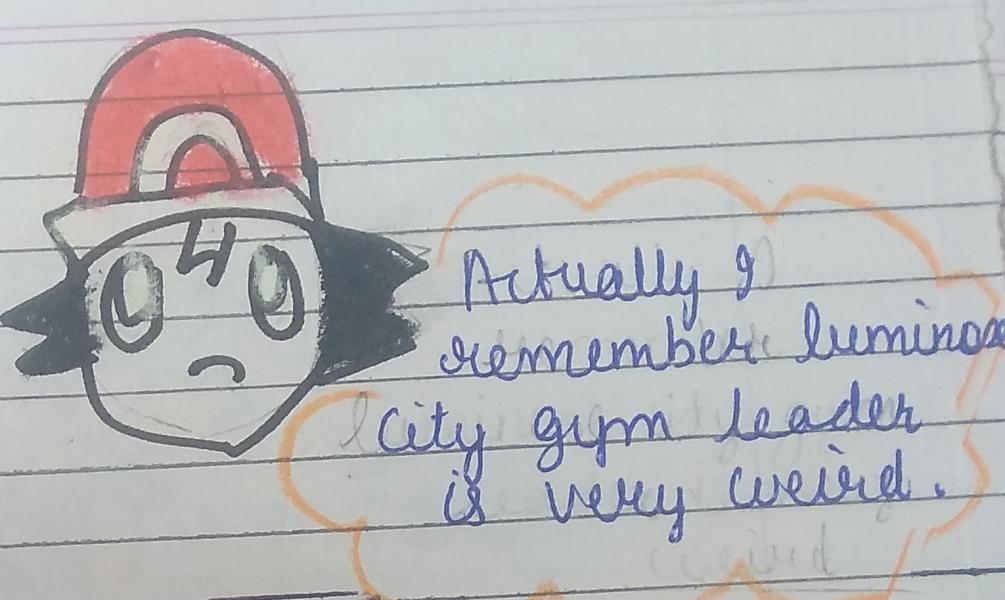 Actually I
remember luminos
city gym leader
is very weird.
weird